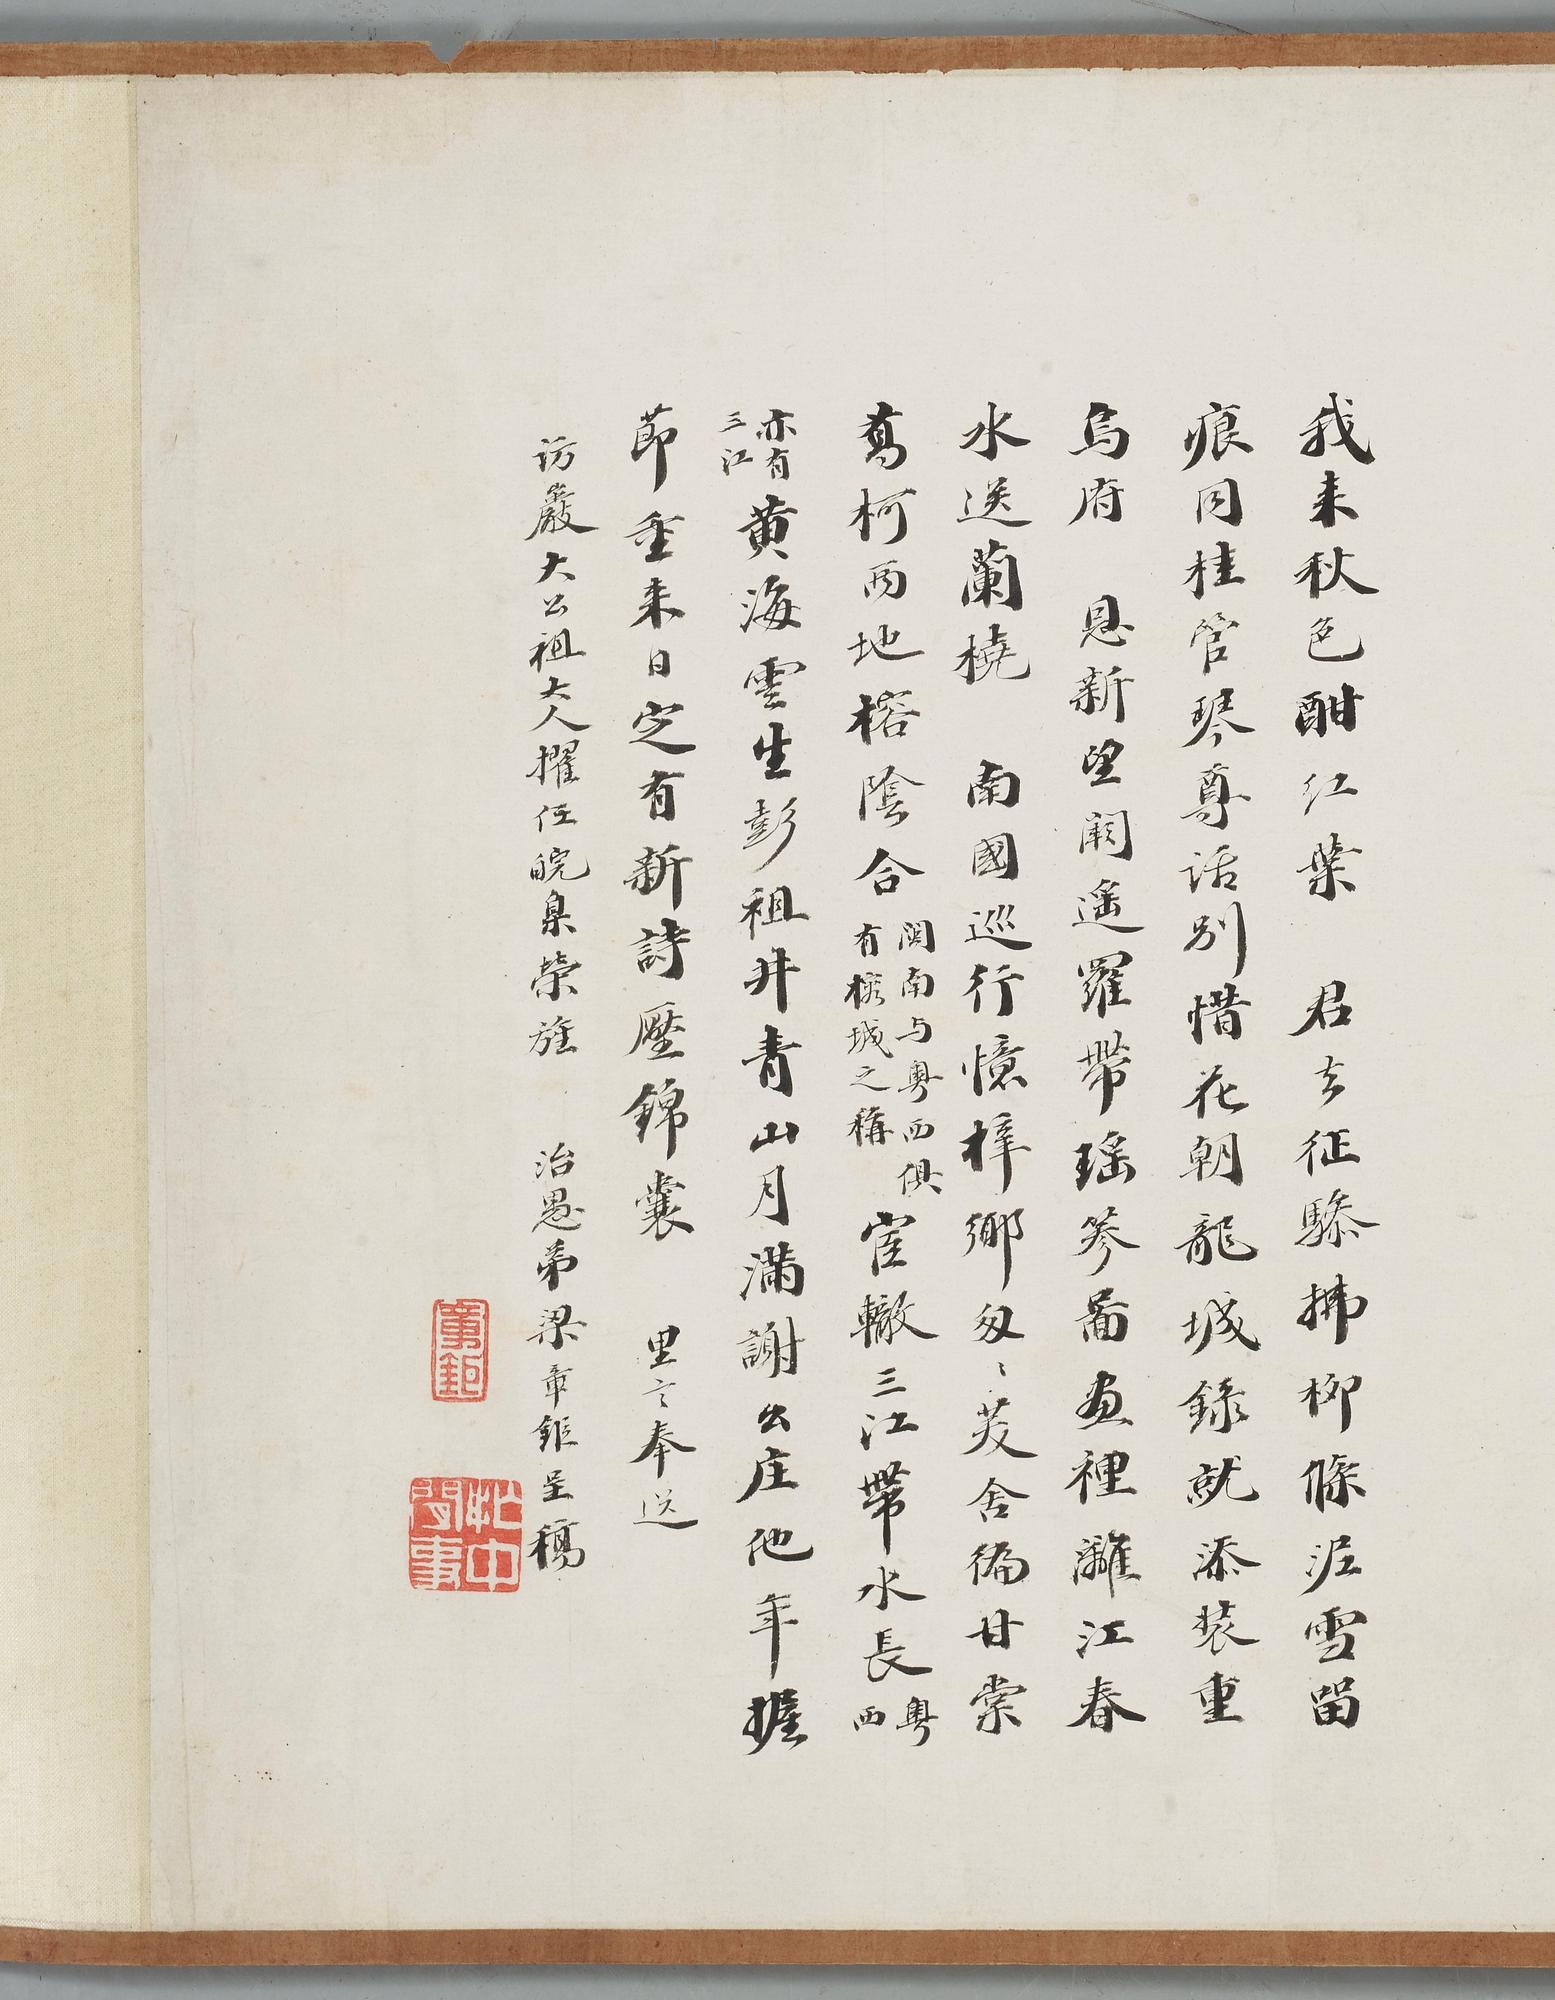 我来秋色酣红葉 君去征驂拂柳條泥雪留
痕同桂管琴尊話别惜花朝龍城錄就添装重
烏府 恩新望闕遥羅帶瑶簪圖畫裡灕江春
水送蘭橈 南國巡行憶梓鄉匆〻茇舍徧甘棠
蔦柯兩地榕陰合
閩南与粤西俱
有榕城之稱
宦轍三江帶水長
粤
西
亦有
三江
黄海雲生彭祖井青山月滿謝公庄他年握
節重来日定有新詩壓錦囊 里言奉送
訪巖大公祖大人擢任皖臬榮旌 治愚弟梁章鉅呈稿
章鉅